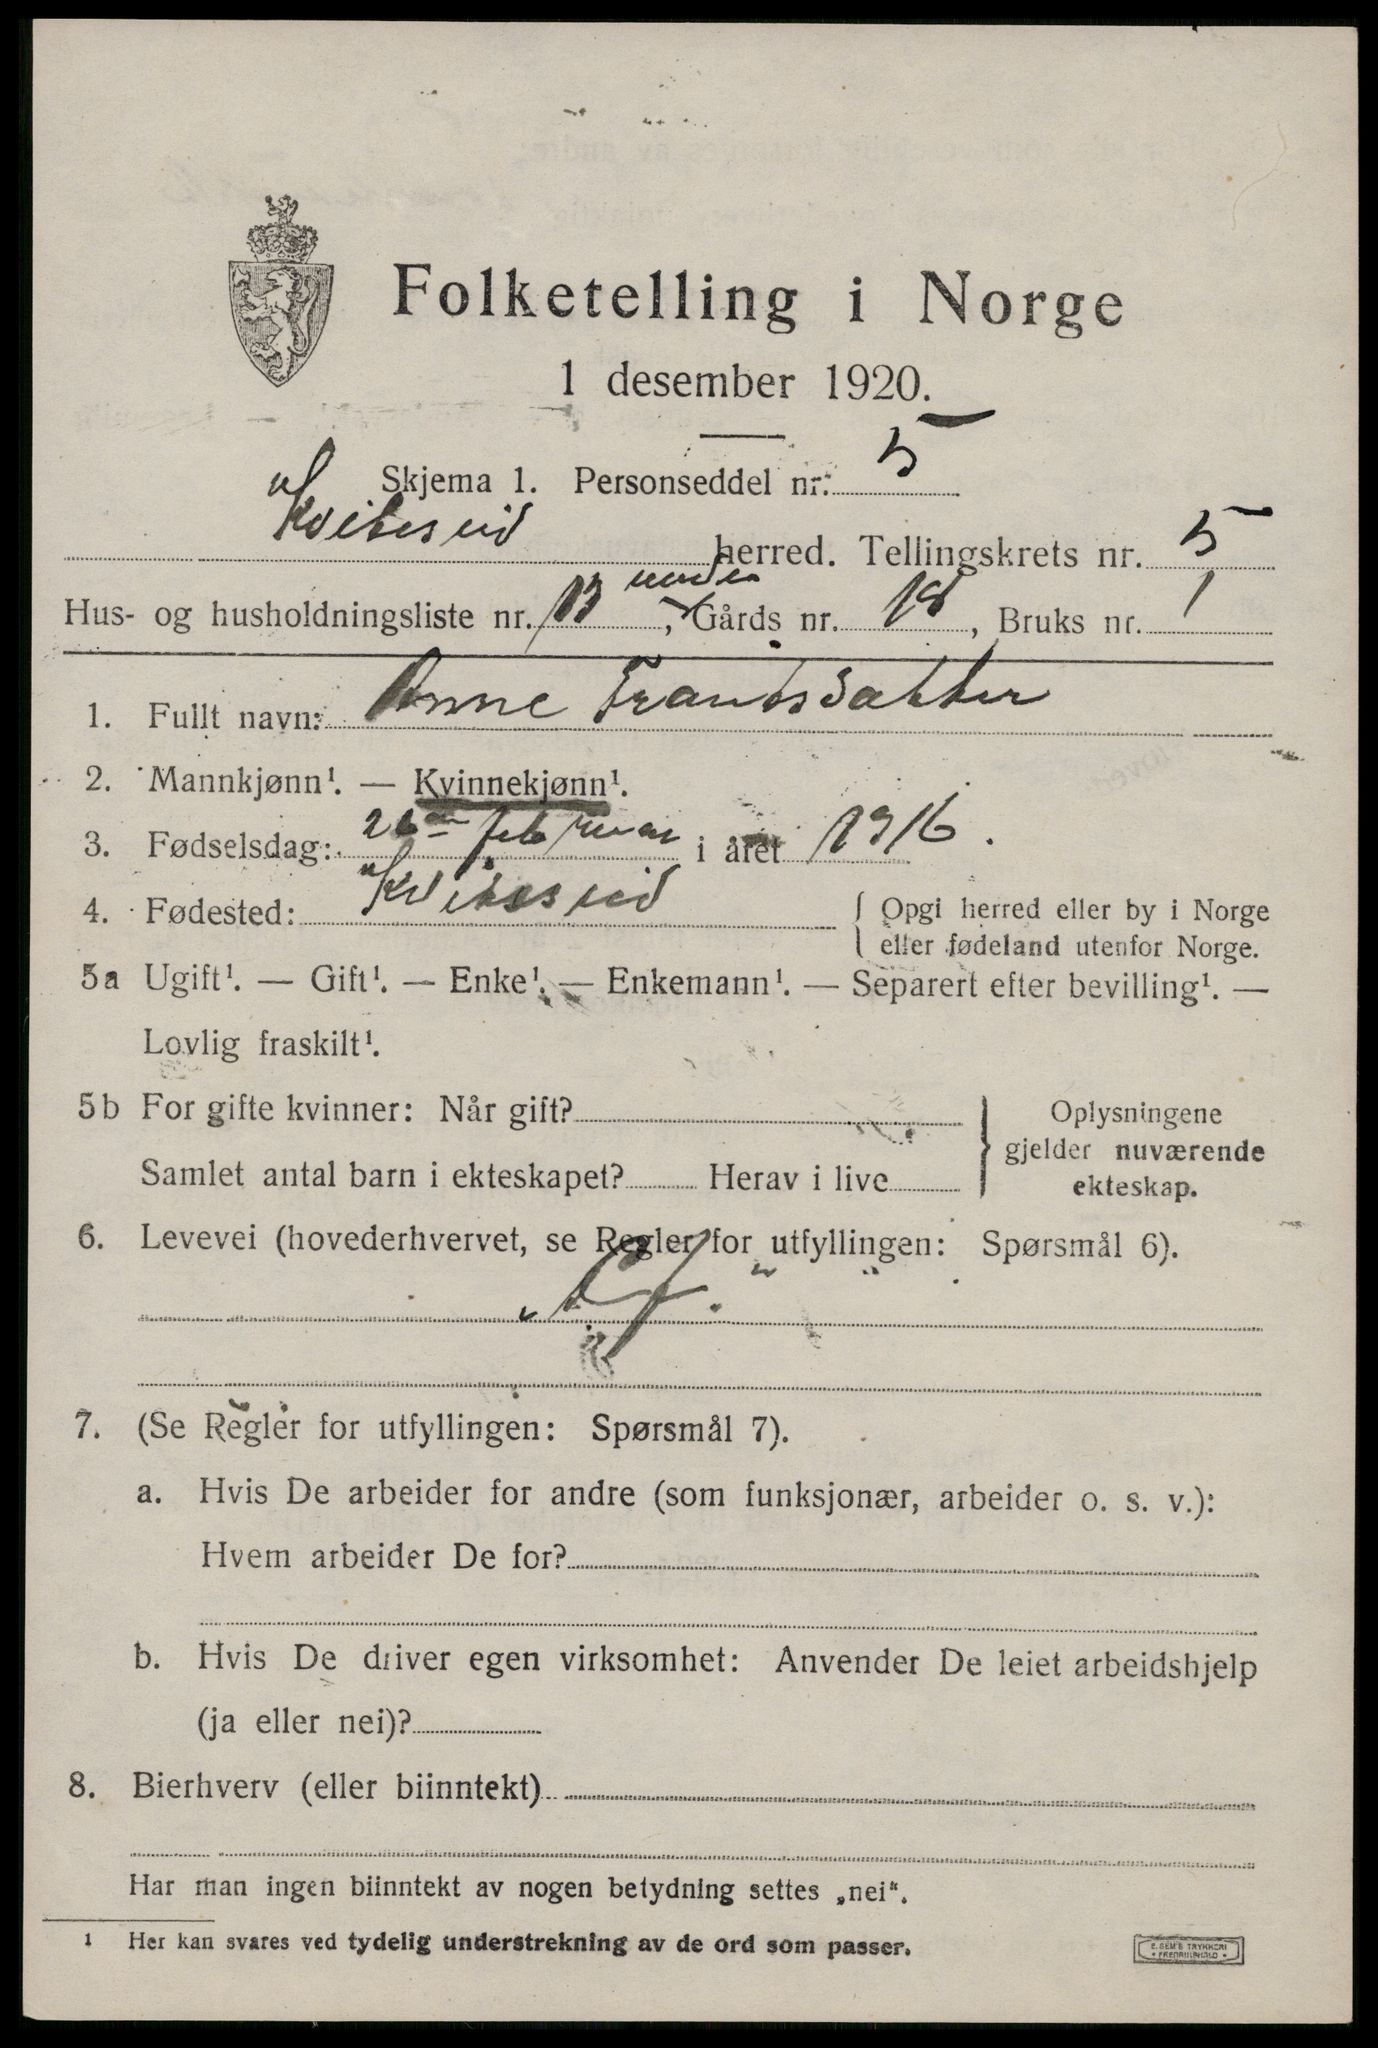 Folketelling i Norge
1 desember 1920.
Skjema 1. Personseddel nr. 5
Kviteseid herred. Tellingskrets nr. 5
under
Hus- og husholdningsliste nr. 13, Gårds nr. 18, Bruks nr. 1
1. Fullt navn: Anne Frantsdatter
2. Mannkjønn¹. — Kvinnekjønn¹.
3. Fødselsdag: 26 februar i året 1916.
4. Fødested: Kviteseid { Opgi herred eller by i Norge
eller fødeland utenfor Norge.
5a Ugift¹. — Gift¹. — Enke¹. — Enkemann¹. — Separert efter bevilling¹. —
Lovlig fraskilt¹.
5b For gifte kvinner: Når gift?
Samlet antal barn i ekteskapet? Herav i live
} Oplysningene
gjelder nuværende
ekteskap.
6. Levevei (hovederhvervet, se Regler for utfyllingen: Spørsmål 6).
7. (Se Regler for utfyllingen: Spørsmål 7).
a. Hvis De arbeider for andre (som funksjonær, arbeider o. s. v.):
Hvem arbeider De for?
b. Hvis De driver egen virksomhet: Anvender De leiet arbeidshjelp
(ja eller nei)?
8. Bierhverv (eller biinntekt)
Har man ingen biinntekt av nogen betydning settes „nei“.
1 Her kan svares ved tydelig understrekning av de ord som passer.
E. SEM'S TRYKKERI
• FREDRIKSHALD •